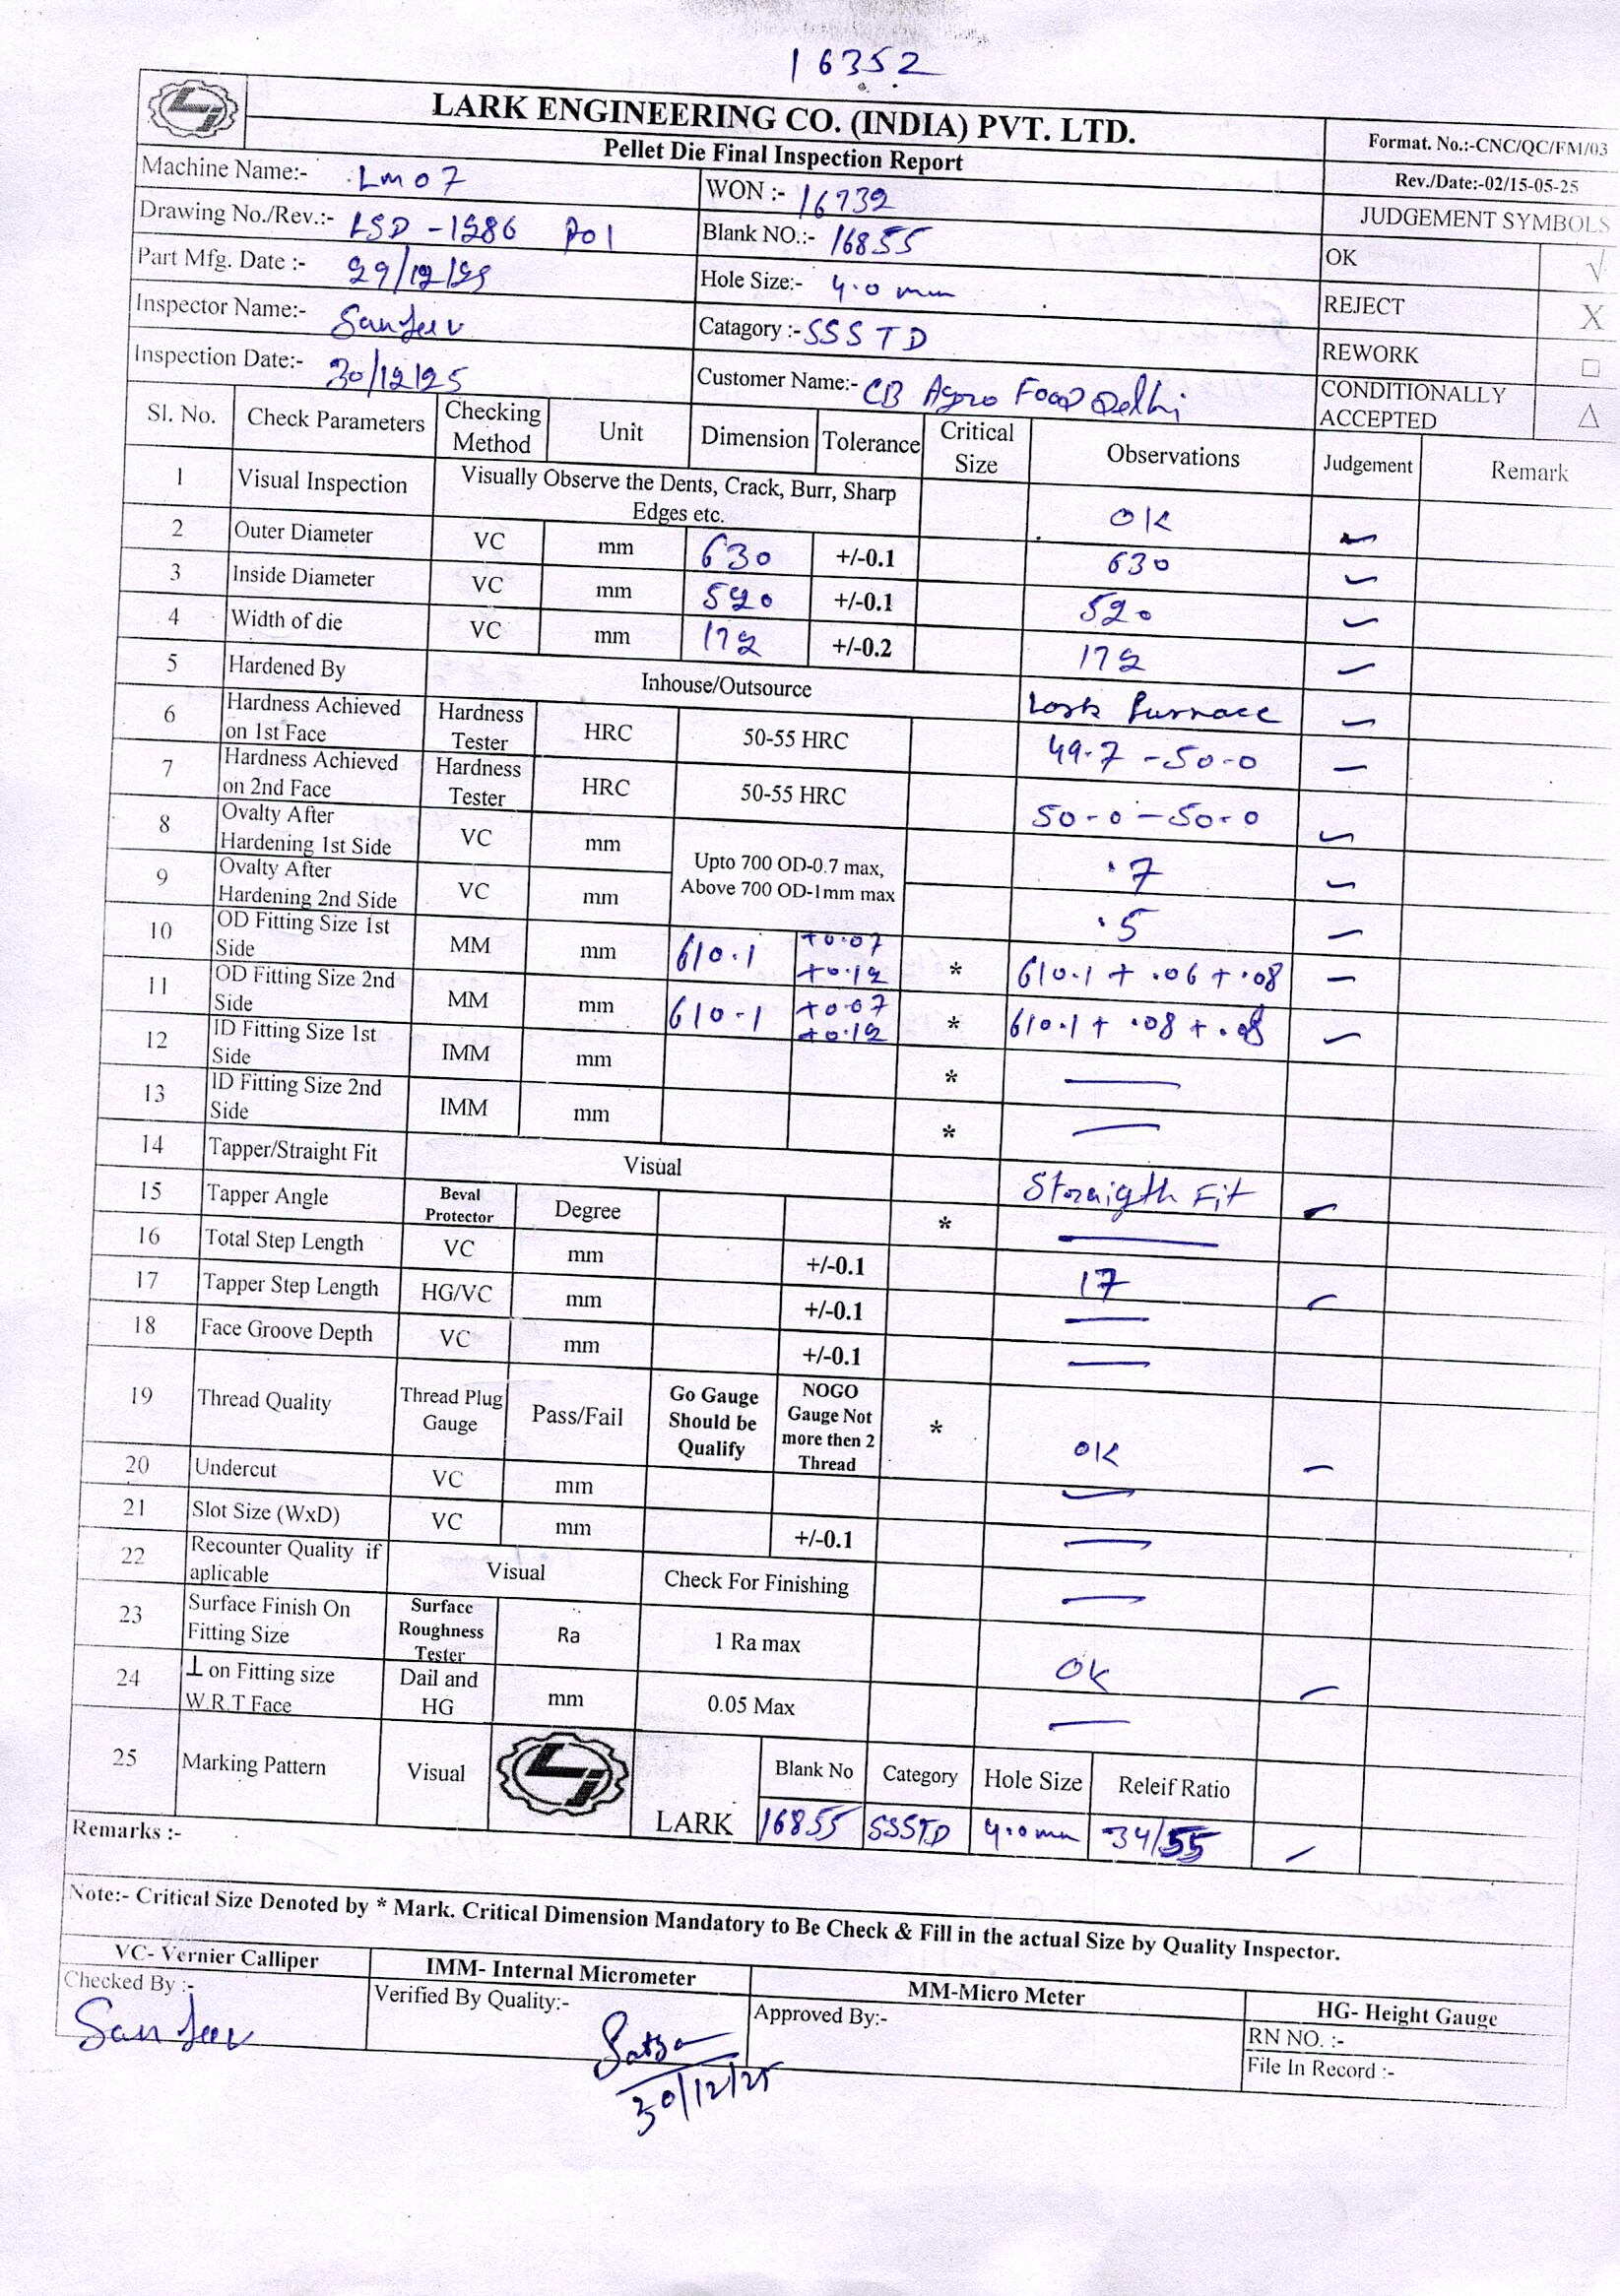 16352
LARK ENGINEERING CO. (INDIA) PVT. LTD.
Pellet Die Final Inspection Report
Format. No.:-CNC/QC/FM/03
Rev./Date:-02/15-05-25
Machine Name:- Lm07
WON :- 16739
JUDGEMENT SYMBOLS
Drawing No./Rev.:- LSD -1286 P01
Blank NO.:- 16855
OK √
Part Mfg. Date :- 29/12/25
Hole Size:- 4.0 mm
REJECT X
Inspector Name:- Sanjeev
Catagory :- SSSTD
REWORK □
Inspection Date:- 30/12/25
Customer Name:- CB Agro Food Delhi
CONDITIONALLY ACCEPTED △
Sl. No. Check Parameters Checking Method Unit Dimension Tolerance Critical Size Observations Judgement Remark
1 Visual Inspection Visually Observe the Dents, Crack, Burr, Sharp Edges etc. OK
2 Outer Diameter VC mm 630 +/-0.1 630
3 Inside Diameter VC mm 520 +/-0.1 520
4 Width of die VC mm 172 +/-0.2 172
5 Hardened By Inhouse/Outsource Lark Furnace
6 Hardness Achieved on 1st Face Hardness Tester HRC 50-55 HRC 49.7 -50.0
7 Hardness Achieved on 2nd Face Hardness Tester HRC 50-55 HRC 50.0 -50.0
8 Ovalty After Hardening 1st Side VC mm Upto 700 OD-0.7 max, Above 700 OD-1mm max .7
9 Ovalty After Hardening 2nd Side VC mm .5
10 OD Fitting Size 1st Side MM mm 610.1 +0.07 +0.12 * 610.1 + .06 + .08
11 OD Fitting Size 2nd Side MM mm 610.1 +0.07 +0.12 * 610.1 + .08 + .08
12 ID Fitting Size 1st Side IMM mm * —
13 ID Fitting Size 2nd Side IMM mm * —
14 Tapper/Straight Fit Visual Straigth Fit
15 Tapper Angle Beval Protector Degree * —
16 Total Step Length VC mm +/-0.1 17
17 Tapper Step Length HG/VC mm +/-0.1 —
18 Face Groove Depth VC mm +/-0.1 —
19 Thread Quality Thread Plug Gauge Pass/Fail Go Gauge Should be Qualify NOGO Gauge Not more then 2 Thread * OK
20 Undercut VC mm —
21 Slot Size (WxD) VC mm +/-0.1 —
22 Recounter Quality if aplicable Visual Check For Finishing —
23 Surface Finish On Fitting Size Surface Roughness Tester Ra 1 Ra max OK
24 ⊥ on Fitting size W.R.T Face Dail and HG mm 0.05 Max —
25 Marking Pattern Visual LARK Blank No Category Hole Size Releif Ratio
16855 SSSTD 4.0mm 34/55
Remarks :-
Note:- Critical Size Denoted by * Mark. Critical Dimension Mandatory to Be Check & Fill in the actual Size by Quality Inspector.
VC- Vernier Calliper IMM- Internal Micrometer MM-Micro Meter HG- Height Gauge
Checked By :- Sanjeev
Verified By Quality:-
30/12/25
Approved By:-
RN NO. :-
File In Record :-